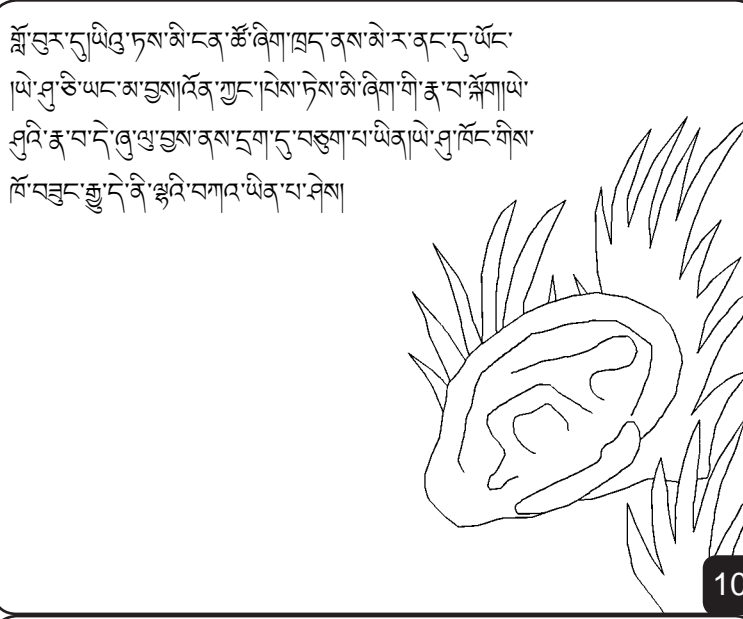 གློ་བུར་དུ།ཡིའུ་ཏས་མི་ངན་ཚོ་ཞིག་ཁྲིད་ནས་མེ་ར་ནང་དུ་ཡོང་
།ཡེ་ཤུ་ཅི་ཡང་མ་བྱས།འོན་ཀྱང་།པེས་ཏེས་མི་ཞིག་གི་རྣ་བ་སྐྲོག།ཡེ་
ཤུའི་རྣ་བ་དེ་ཞུ་ལུ་བྱས་ནས་དྲག་ཏུ་བཅུག་པ་ཡིན།ཡེ་ཤུ་ཁོང་གིས་
ཁོ་བཟུང་རྒྱུ་དེ་ནི་ལྷའི་བཀའ་ཡིན་པ་ཤེས།
10